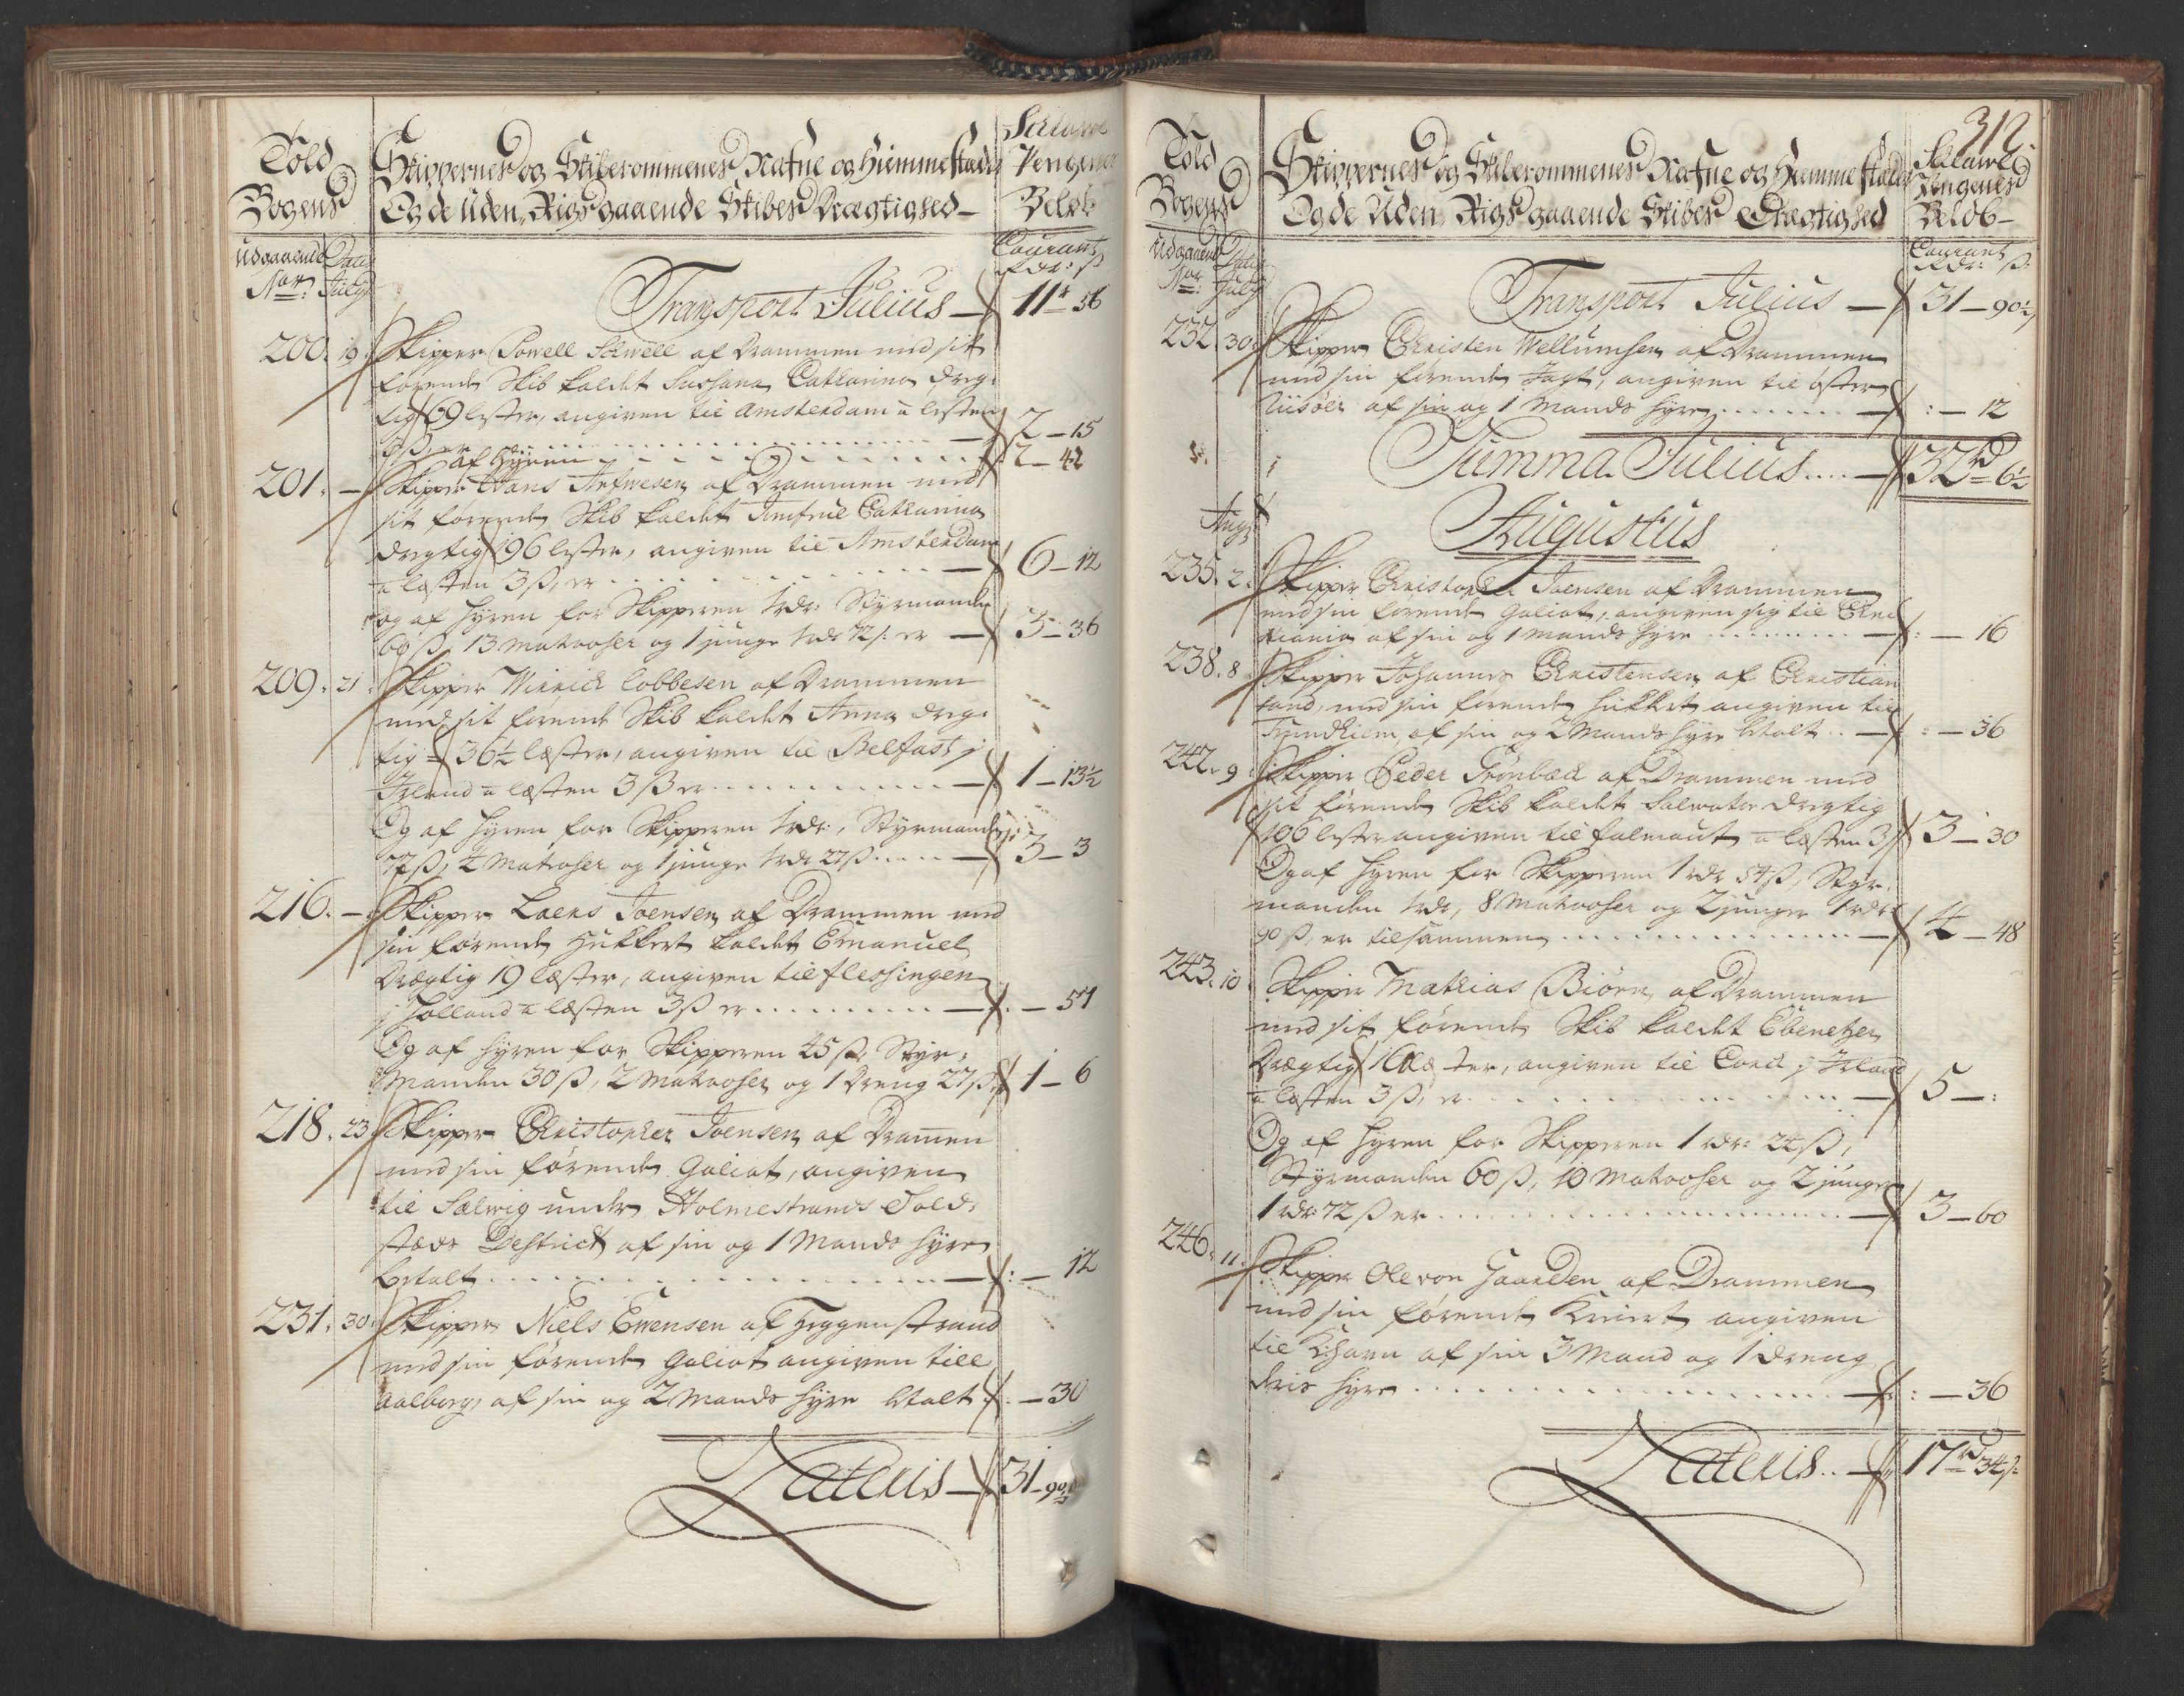 Told
Bogens
Skippernes og Skiberommenes Nafne og Hiemmestæd
Og de uden Rigs gaaende Skibes Drægtighed
Pengenes
Beløb
udgaaende
No.
Dato
July
Courant
Rdr: ß
Transport Julius — 11 56
200. 19. Skipper Powell Schwell af Drammen med sit
førende Skib kaldet Sussana Catharina dreg-
tig 69 lester, angiven til Amsterdam a lesten
3 ß, er — 2 — 15
af Hyren — 2 — 42
201. — Skipper Hans Anfwesen af Drammen med
sit førende Skib kaldet Jomfrue Catharina
drægtig 196 lester, angiven til Amsterdam
a læsten 3 ß, er — 6 — 12
og af Hyren for Skipperen 1 rdr: Styrmanden
60 ß, 13 Matrooser og 1 junge 1 rdr 72 ß er — 3 — 36
209. 21. Skipper Winnich Cobbesen af Drammen
med sit førende Skib kaldet Anna dreg-
tig 36½ læster, angiven til Belfast j
Irland a læsten 3 ß er — 1 — 13½
Og af Hyren for Skipperen 1 rdr:, Styrmanden
77 ß, 4 Matroser og 1 junge 1 rdr 27 ß — 3 — 3
216. — Skipper Laers Joensen af Drammen med
sin førende Hukkert kaldet Emanuel
Drægtig 19 læster, angiven til flessingen
j Holland a læsten 3 ß er — 57
Og af Hyren for Skipperen 45 ß, Styr-
Manden 30 ß, 2 Matrooser og 1 Dreng 27 ß 1 — 6
218. 23 Skipper Christopher Joensen af Dramen
med sin førende Galiot, angiven
til Sælwig under Holmestrands Told-
stæds Destrict af sin og 1 Mands Hyre
betalt — 12
231. 30. Skipper Niels Ewensen af Heggenstrand
med sin førende Galiot angiven till
Aalborg af sin og 2 Mands Hyre betalt — 30
Lateris — 31 — 90½
312.
Told
Bogens
Skippernes og Skiberommenes Nafne og Hiemmestæd
Og de Uden Rigs gaaende Skibes Drægtighed
Pengenes
Beløb —
Udgaaende
No.
Dato
July
Courant
Rdr: ß:
Transport Julius — 31 — 90½
232. 30. Skipper Christen Wellumsen af Drammen
med sin førende Jagt, angiven til Øster
Riisøer af sin og 1 Mands Hyre — 12
Summa Julius — 32rd 6½
Augs
Augustus
235. 2. Skipper Christopher Joensen af Drammen
med sin førende Galiot, angiven sig til Chri-
stiania af sin og 1 Mands Hyre — 16
238. 8. Skipper Johannes Christensen af Christian
sand, med sin førende Hukkert angiven til
Trundhiem af sin og 2 Mands Hyre betalt — 36
242. 9. Skipper Peder Grønbeck af Drammen med
sit førende Skib kaldet Salwator dregtig
106 lester angiven til falmout a læsten 3 ß 3 — 30
Og af Hyren for Skipperen 1 rdr 54 ß, Styr-
manden 1 rdr, 8 Matrooser og 2 junger 1 rdr
90 ß, er tilsammen — 4 — 48
243. 10 Skipper Mathias Biørn, af Drammen
med sit førende Skib kaldet Ebenetzer
Drægtig 160 læster, angiven til Corck j Irland
a læsten 3 ß, er — 5 —:
Og af Hyren for Skipperen 1 rdr: 24 ß,
Styrmanden 60 ß, 10 Matrooser og 2 junger
1 rdr 72 ß er — 3 — 60
246. 11. Skipper Ole von Haarden af Drammen
med sin førende Kreiert angiven
til Khavn af sin 3 Mand og 1 dreng
dris Hyre — 36
Lateris — 17rd 34 ß